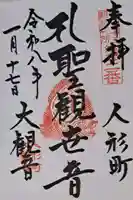 奉拝
人形町
聖観世音
大観音
令和八年
一月十七日